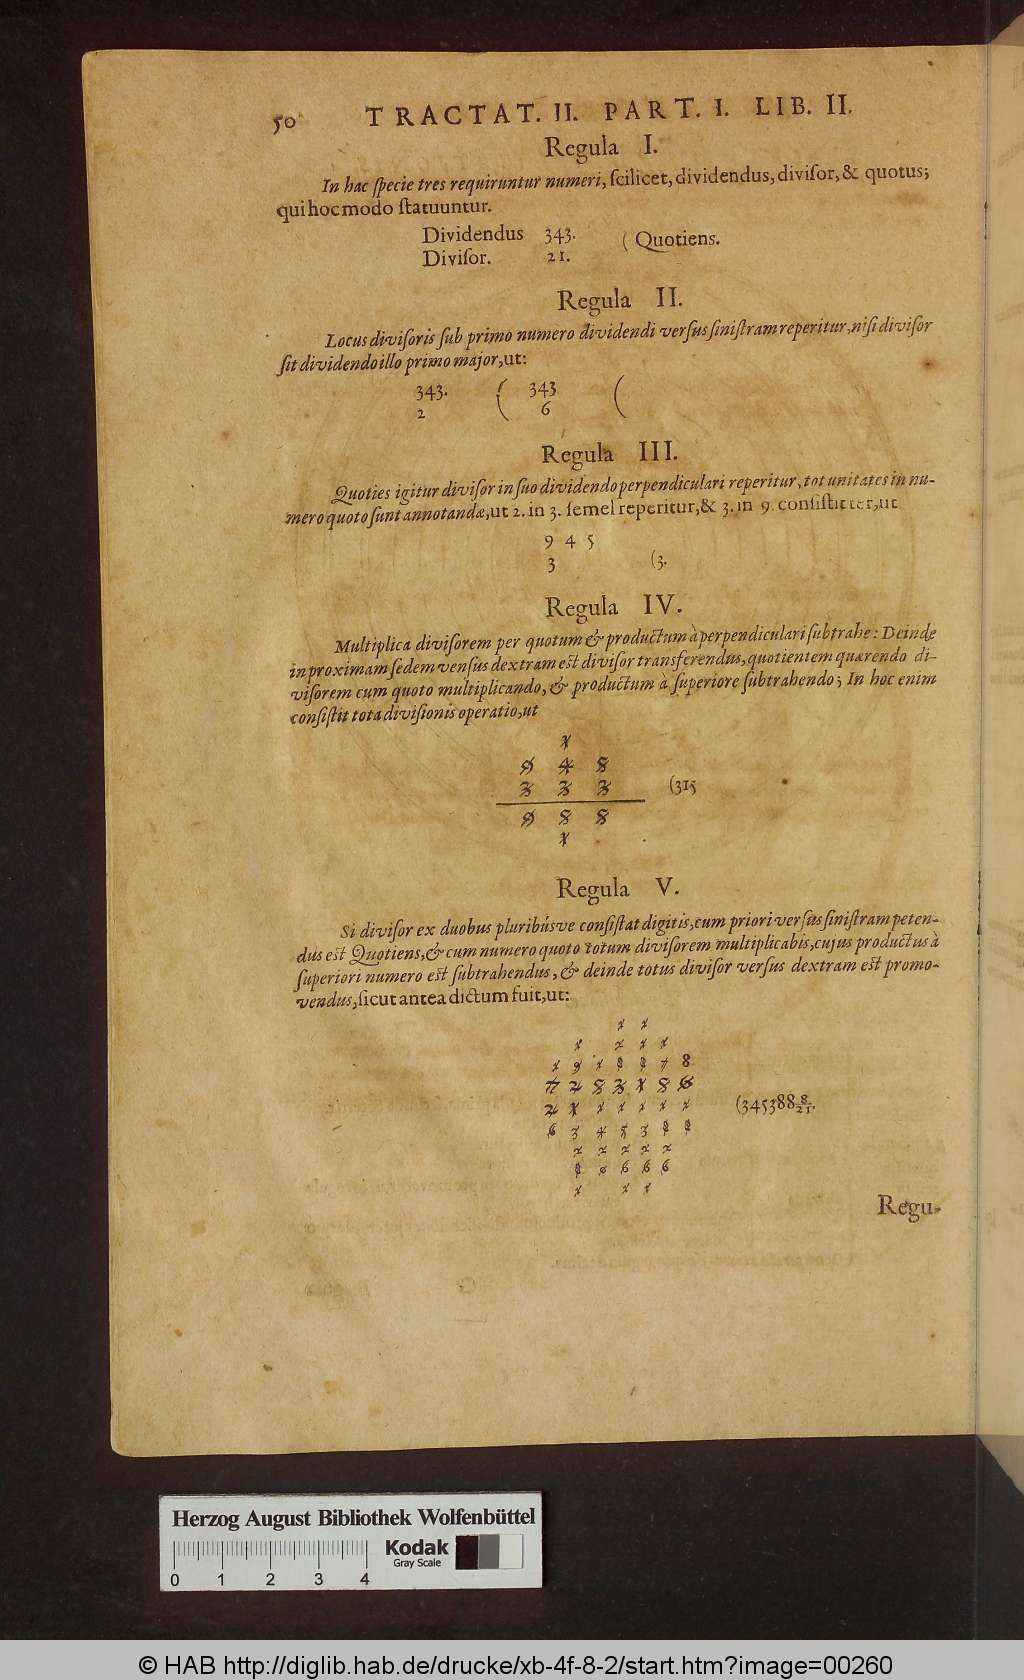 50 TRACTAT. II. PART. I. LIB. II.
Regula I.
In hac specie tres requiruntur numeri, ſcilicet, dividendus, diviſor, & quotus;
qui hoc modo ſtatuuntur.
Dividendus 343. ( Quotiens.
Diviſor. 21.
Regula II.
Locus diviſoris ſub primo numero dividendi verſus ſiniſtram reperitur, niſi diviſor
ſit dividendo illo primo major, ut:
343. ( 343 (
2 6
Regula III.
Quoties igitur diviſor in ſuo dividendo perpendiculari reperitur, tot unitates in nu-
mero quoto ſunt annotandæ, ut 2. in 3. ſemel reperitur, & 3. in 9. conſiſtit ter, ut
9 4 5
3 (3.
Regula IV.
Multiplica diviſorem per quotum & productum à perpendiculari ſubtrahe: Deinde
in proximam ſedem verſus dextram eſt diviſor transferendus, quotientem quærendo di-
viſorem cum quoto multiplicando, & productum à ſuperiore ſubtrahendo; In hoc enim
conſiſtit tota diviſionis operatio, ut
1
9 4 8
3 3 3 (315
9 8 8
1
Regula V.
Si diviſor ex duobus pluribúsve conſiſtat digitis, cum priori verſus ſiniſtram peten-
dus eſt Quotiens, & cum numero quoto totum diviſorem multiplicabis, cujus productus à
ſuperiori numero eſt ſubtrahendus, & deinde totus diviſor verſus dextram eſt promo-
vendus, ſicut antea dictum fuit, ut:
(345388 8/21.
Regu-
Herzog August Bibliothek Wolfenbüttel
Kodak
Gray Scale
0 1 2 3 4
© HAB http://diglib.hab.de/drucke/xb-4f-8-2/start.htm?image=00260